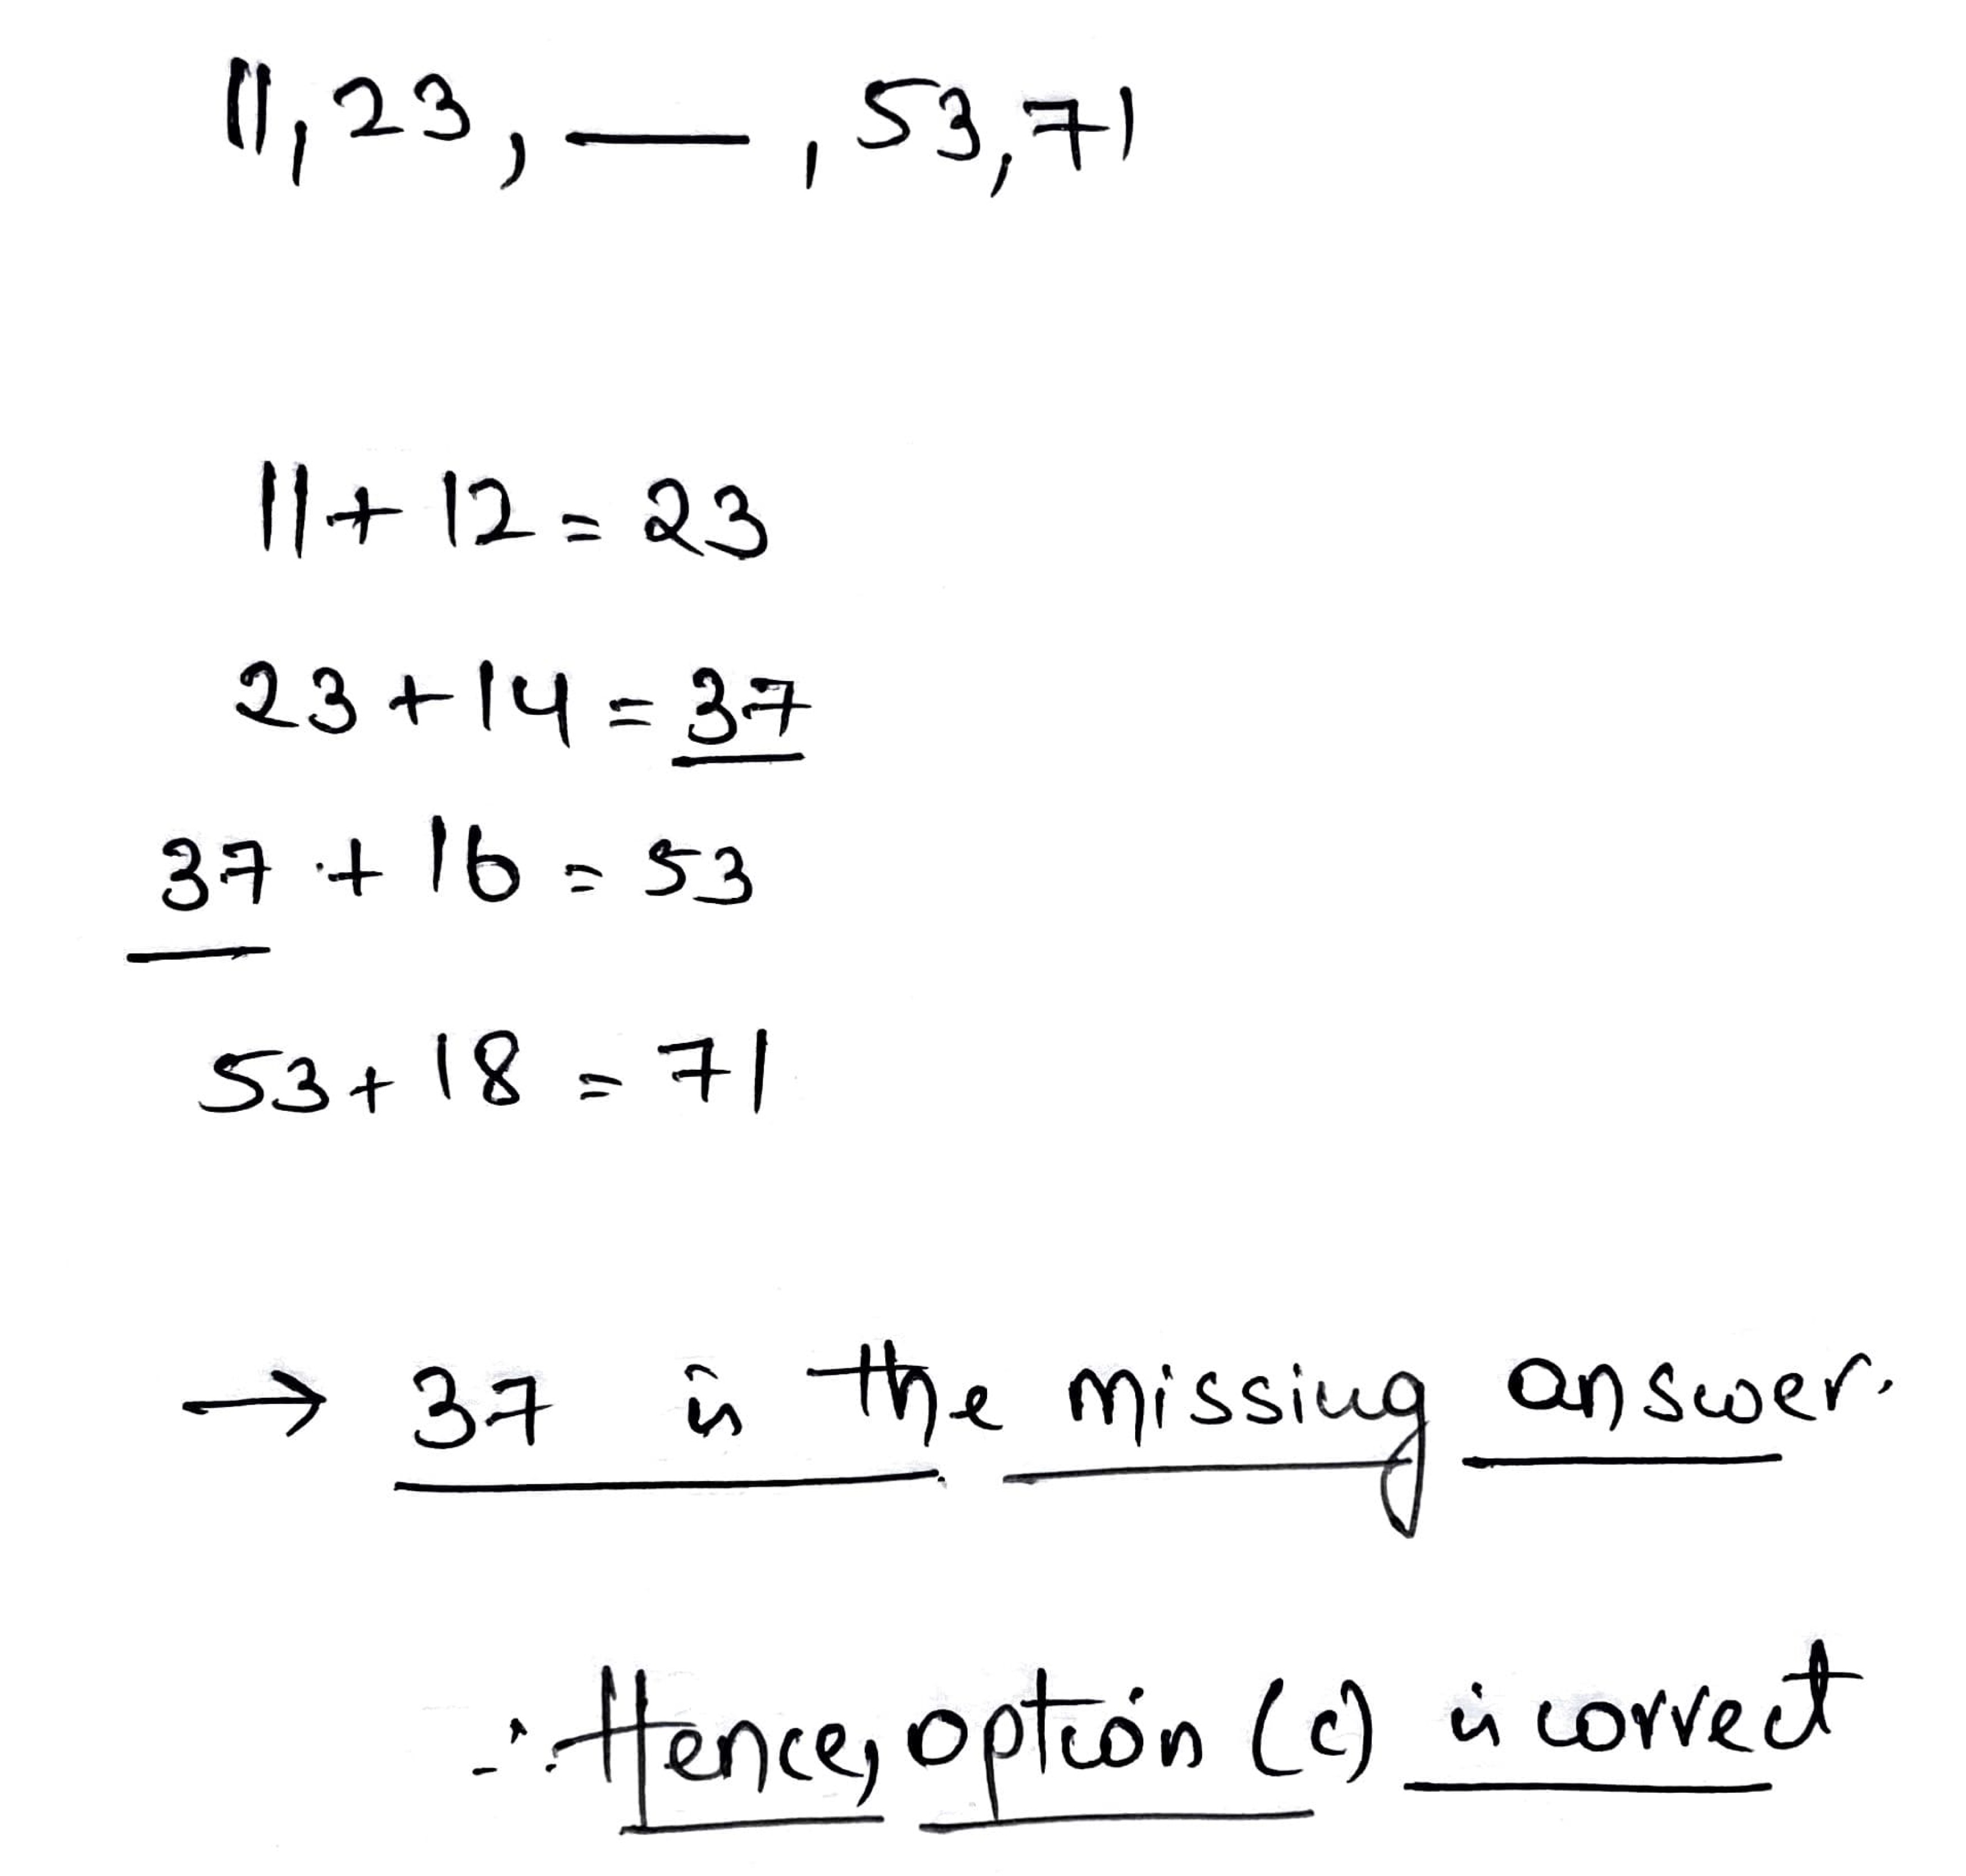 11, 23, __, 53, 71
11 + 12 = 23
23 + 14 = 37
37 + 16 = 53
53 + 18 = 71
→ 37 is the missing answer.
∴ Hence, option (c) is correct